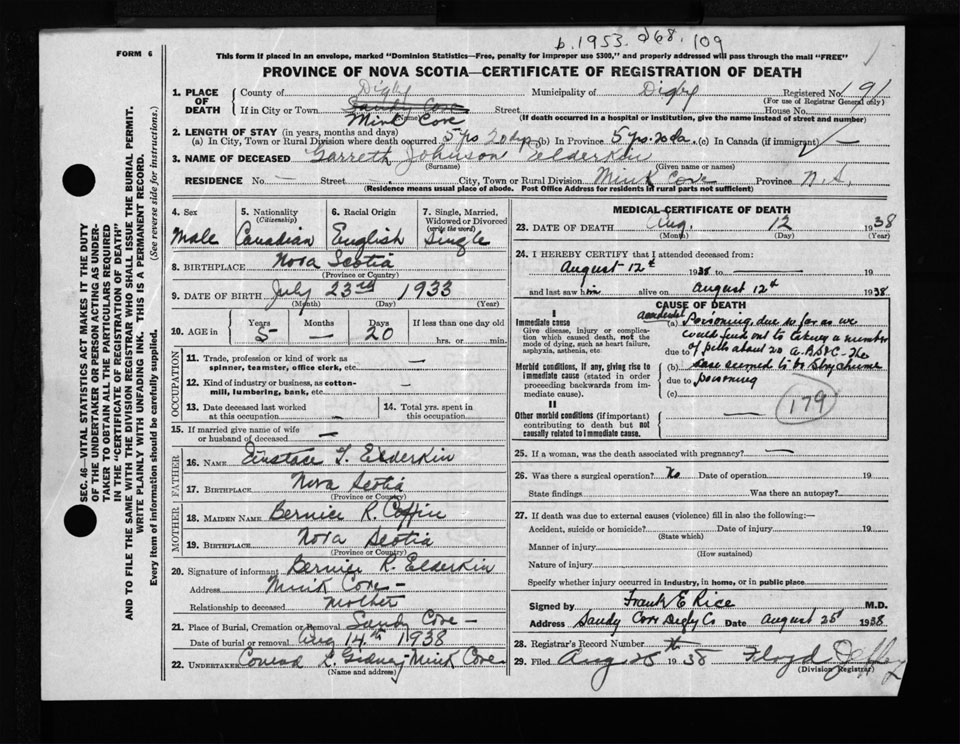 b. 1953. d68. 109
FORM 6
This form if placed in an envelope, marked "Dominion Statistics—Free, penalty for improper use $300," and properly addressed will pass through the mail "FREE"
PROVINCE OF NOVA SCOTIA—CERTIFICATE OF REGISTRATION OF DEATH
SEC. 46—VITAL STATISTICS ACT MAKES IT THE DUTY
OF THE UNDERTAKER OR PERSON ACTING AS UNDER-
TAKER TO OBTAIN ALL THE PARTICULARS REQUIRED
IN THE "CERTIFICATE OF REGISTRATION OF DEATH"
AND TO FILE THE SAME WITH THE DIVISION REGISTRAR WHO SHALL ISSUE THE BURIAL PERMIT.
WRITE PLAINLY WITH UNFADING INK. THIS IS A PERMANENT RECORD.
Every item of information should be carefully supplied. (See reverse side for instructions.)
1. PLACE OF DEATH
County of Digby Municipality of Digby Registered No. 191
(For use of Registrar General only)
If in City or Town Sandy Cove Street House No.
Mink Cove (If death occurred in a hospital or institution, give the name instead of street and number)
2. LENGTH OF STAY (in years, months and days)
(a) In City, Town or Rural Division where death occurred 5 yrs 20 dys (b) In Province 5 yrs. 20 da. (c) In Canada (if immigrant) —
3. NAME OF DECEASED Garreth Johnson Elderkin
(Surname) (Given name or names)
RESIDENCE No. — Street City, Town or Rural Division Mink Cove Province N.S.
(Residence means usual place of abode. Post Office Address for residents in rural parts not sufficient)
4. Sex Male
5. Nationality (Citizenship) Canadian
6. Racial Origin English
7. Single, Married, Widowed or Divorced (write the word) Single
8. BIRTHPLACE Nova Scotia
(Province or Country)
9. DATE OF BIRTH July 23rd 1933
(Month) (Day) (Year)
10. AGE in Years 5 Months — Days 20 If less than one day old
hrs. or min.
OCCUPATION
11. Trade, profession or kind of work as spinner, teamster, office clerk, etc. —
12. Kind of industry or business, as cotton-mill, lumbering, bank, etc. —
13. Date deceased last worked at this occupation —
14. Total yrs. spent in this occupation
15. If married give name of wife or husband of deceased —
FATHER
16. Name Eustace T. Elderkin
17. Birthplace Nova Scotia
(Province or Country)
MOTHER
18. MAIDEN NAME Bernice R. Coffin
19. BIRTHPLACE Nova Scotia
(Province or Country)
20. Signature of informant Bernice R. Elderkin
Address Mink Cove —
Relationship to deceased Mother
21. Place of Burial, Cremation or Removal Sandy Cove —
Date of burial or removal Aug 14th 1938
22. UNDERTAKER Conrad L. Gidney Mink Cove
(Name and address)
MEDICAL CERTIFICATE OF DEATH
23. DATE OF DEATH Aug. 12 1938
(Month) (Day) (Year)
24. I HEREBY CERTIFY that I attended deceased from:
August 12th 1938 to — 19
and last saw him alive on August 12th 1938
CAUSE OF DEATH
I
Immediate cause
Give disease, injury or complication which caused death, not the mode of dying, such as heart failure, asphyxia, asthenia, etc.
Morbid conditions, if any, giving rise to immediate cause (stated in order proceeding backwards from immediate cause).
accidental
(a) Poisoning, due so far as we
could find out to taking a number
due to of pills about 20 A.B.S & C. The
(b) case seemed to be Strychnine
due to poisoning
(c)
179
II
Other morbid conditions (if important) contributing to death but not causally related to immediate cause. —
25. If a woman, was the death associated with pregnancy? —
26. Was there a surgical operation? No Date of operation 19
State findings Was there an autopsy?
27. If death was due to external causes (violence) fill in also the following:—
Accident, suicide or homicide? Date of injury 19
(State which)
Manner of injury
(How sustained)
Nature of injury
Specify whether injury occurred in industry, in home, or in public place
Signed by Frank E Rice M.D.
Address Sandy Cove Digby Co Date August 25th 1938
28. Registrar's Record Number
29. Filed Aug 25 1938 Floyd
(Division Registrar)